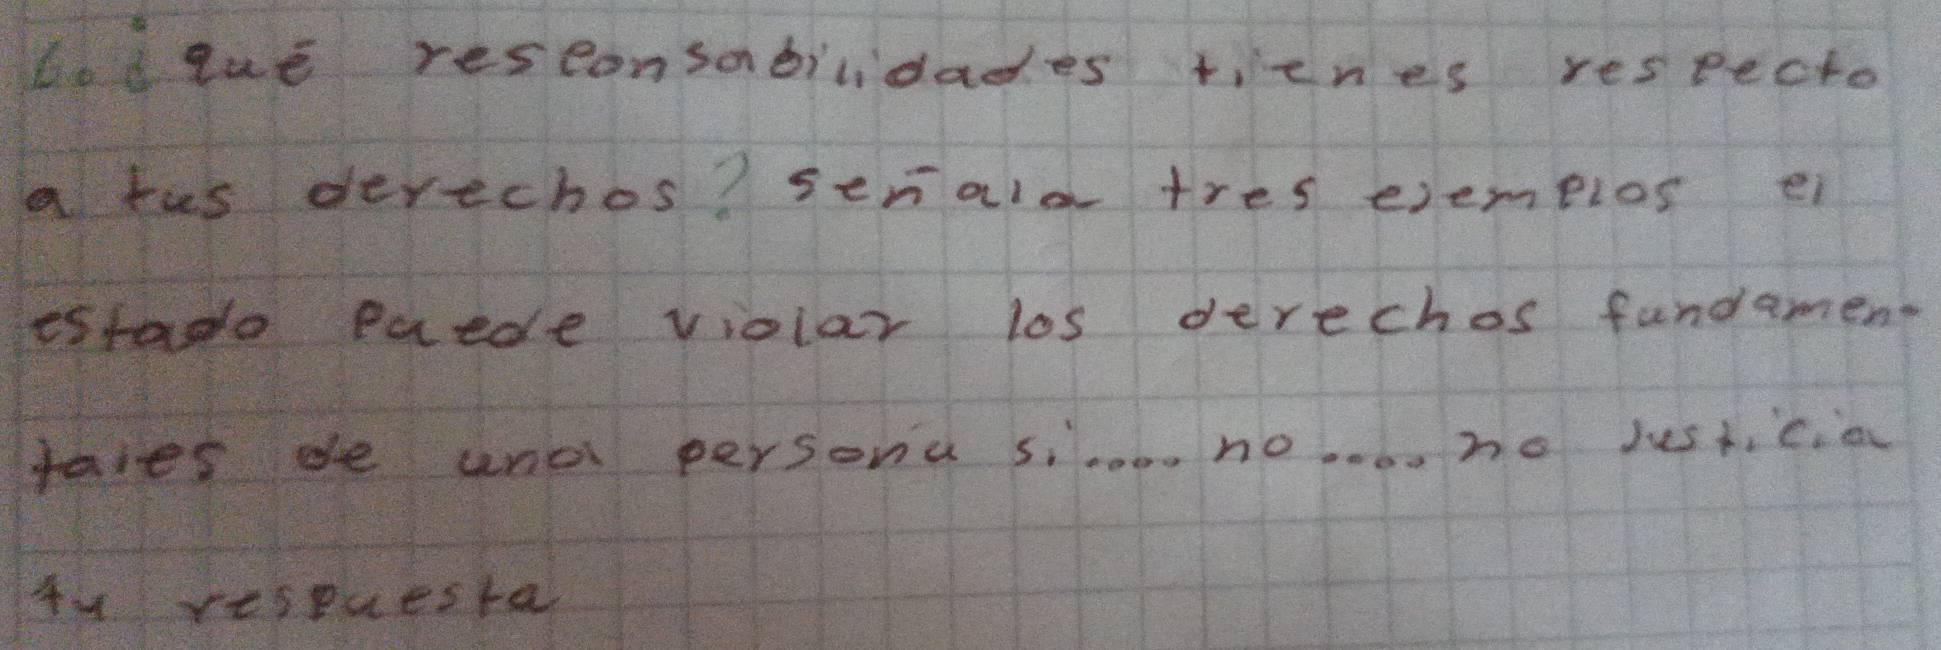 6. ¿ qué responsabilidades tienes respecto
a tus derechos? señala tres ejemplos el
estado puede violar los derechos fundamen-
tales de una persona si.... no.... no Justicia
tu respuesta